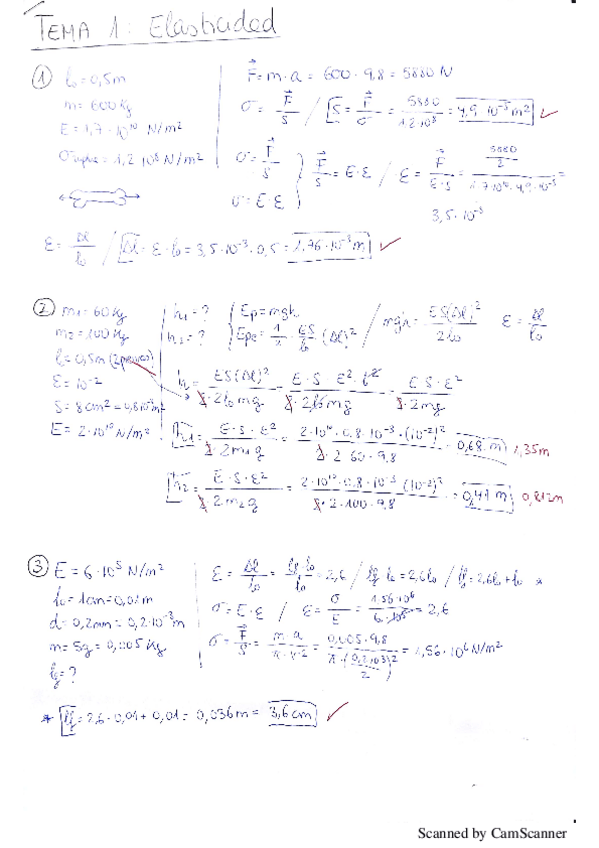 TEMA 1: Elasticidad
① l₀ = 0,5m
m = 600 Kg
E = 1,7 · 10¹⁰ N/m²
1,2 · 10⁸ N/m²
F = m · a = 600 · 9,8 = 5880 N
σ = F/S / S = F/σ = 5880/1,2·10⁸ = 4,9 · 10⁻⁵ m² ✓
σ = F/S
σ = E · ε
F/S = E · ε / ε = F/E·S = 5880/2 / 1,7·10¹⁰·4,9·10⁻⁵ =
3,5 · 10⁻³
ε = Δl/l₀ / Δl = ε · l₀ = 3,5 · 10⁻³ · 0,5 = 1,76 · 10⁻³ m ✓
② m₁ = 60 Kg
m₂ = 100 Kg
l = 0,5m (2 piernas)
ε = 10⁻²
S = 8 cm² = 0,8·10⁻³ m²
E = 2 · 10¹⁰ N/m²
h₁ = ?
h₂ = ?
Ep = mgh
Epe = 1/2 · ES/l₀ · (Δl)² / mgh = ES(Δl)²/2l₀ ε = Δl/l₀
h = ES(Δl)²/2l₀mg = E·S·ε²·l₀²/2l₀mg = E·S·ε²/2mg
h₁ = E·S·ε²/2m₁g = 2·10¹⁰·0,8·10⁻³·(10⁻²)²/2·60·9,8 = 0,68 m 1,35m
h₂ = E·S·ε²/2m₂g = 2·10¹⁰·0,8·10⁻³·(10⁻²)²/2·100·9,8 = 0,41 m 0,812m
③ E = 6 · 10⁵ N/m²
l₀ = 1cm = 0,01m
d = 0,2mm = 0,2·10⁻³m
m = 5g = 0,005 Kg
lf = ?
ε = Δl/l₀ = lf - l₀/l₀ = 2,6 / lf - l₀ = 2,6l₀ / lf = 2,6l₀ + l₀ *
σ = E · ε / ε = σ/E = 1,56·10⁶/6·10⁵ = 2,6
σ = F/S = m·a/π·r² = 0,005·9,8/π·(0,2·10⁻³/2)² = 1,56·10⁶ N/m²
* lf = 2,6 · 0,01 + 0,01 = 0,036m = 3,6 cm ✓
Scanned by CamScanner